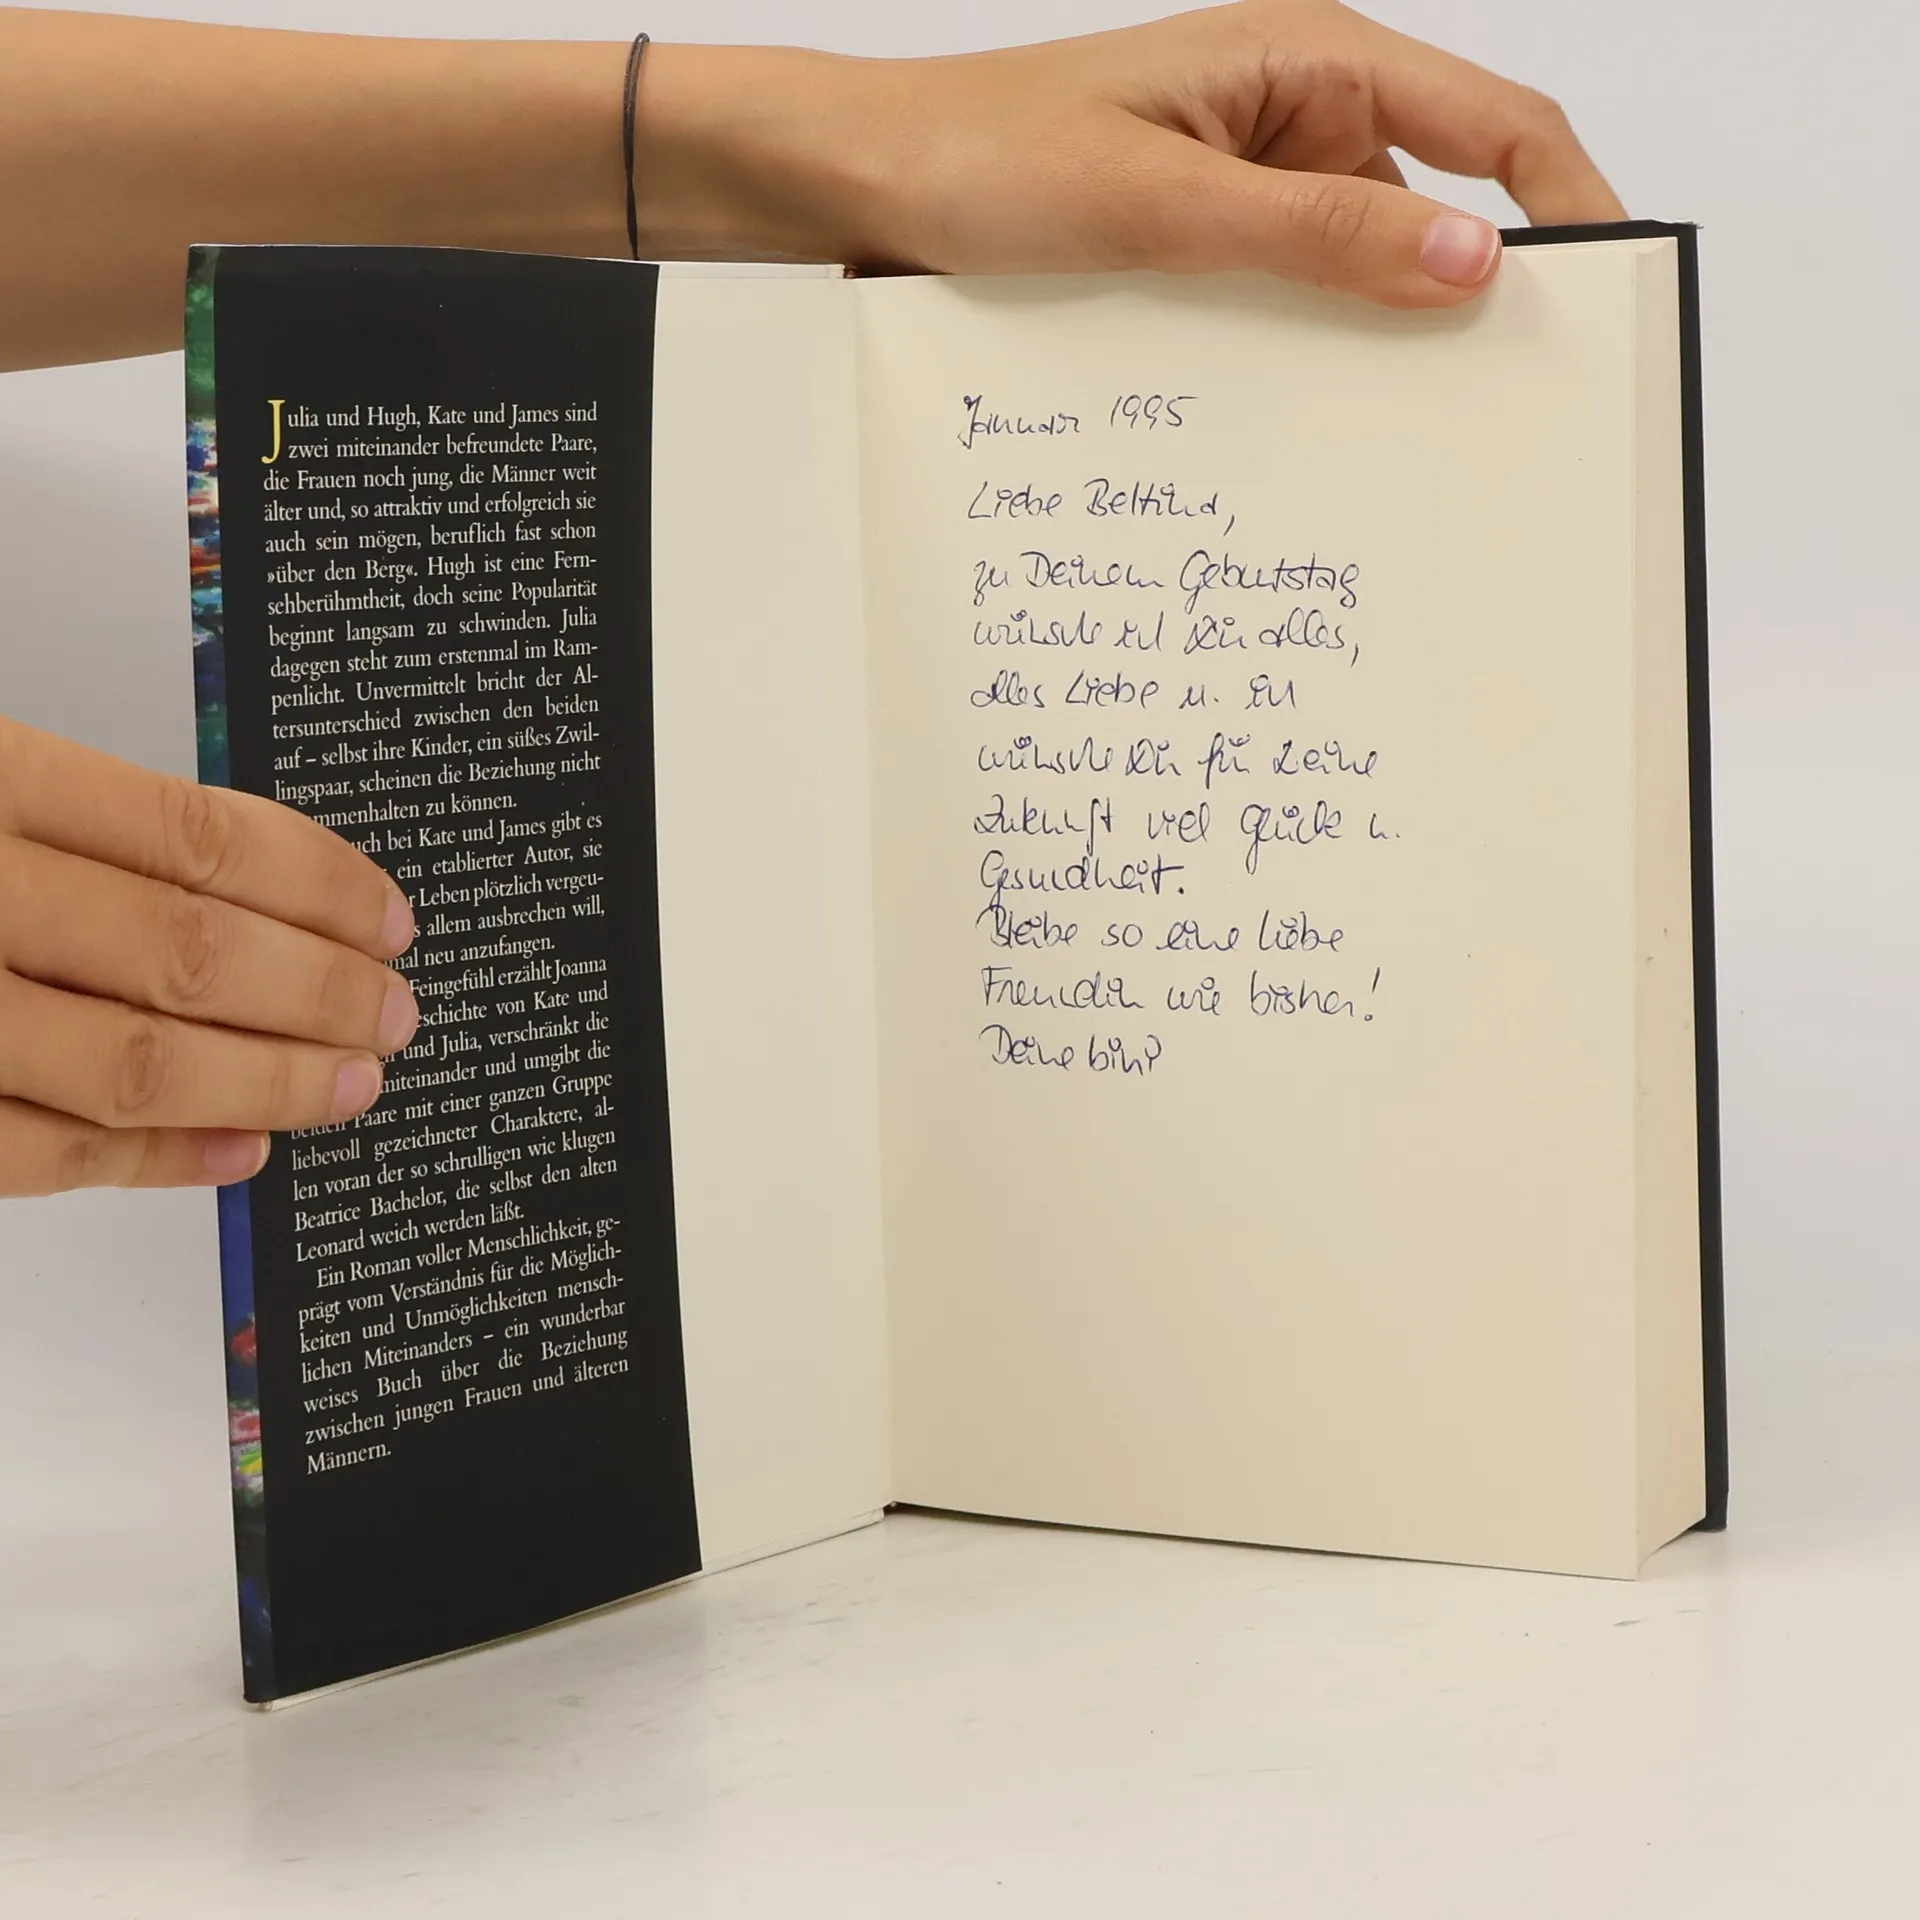 Julia und Hugh, Kate und James sind
zwei miteinander befreundete Paare,
die Frauen noch jung, die Männer weit
älter und, so attraktiv und erfolgreich sie
auch sein mögen, beruflich fast schon
»über den Berg«. Hugh ist eine Fern-
sehberühmtheit, doch seine Popularität
beginnt langsam zu schwinden. Julia
dagegen steht zum erstenmal im Ram-
penlicht. Unvermittelt bricht der Al-
tersunterschied zwischen den beiden
auf – selbst ihre Kinder, ein süßes Zwil-
lingspaar, scheinen die Beziehung nicht
mmenhalten zu können.
uch bei Kate und James gibt es
ein etablierter Autor, sie
r Leben plötzlich vergeu-
s allem ausbrechen will,
mal neu anzufangen.
Feingefühl erzählt Joanna
eschichte von Kate und
und Julia, verschränkt die
miteinander und umgibt die
beiden Paare mit einer ganzen Gruppe
liebevoll gezeichneter Charaktere, al-
len voran der so schrulligen wie klugen
Beatrice Bachelor, die selbst den alten
Leonard weich werden läßt.
Ein Roman voller Menschlichkeit, ge-
prägt vom Verständnis für die Möglich-
keiten und Unmöglichkeiten mensch-
lichen Miteinanders – ein wunderbar
weises Buch über die Beziehung
zwischen jungen Frauen und älteren
Männern.
Januar 1995
Liebe
zu Deinem Geburtstag
wünsche ich Dir alles,
alles Liebe u. ich
wünsche Dir für Deine
Zukunft viel Glück u.
Gesundheit.
Bleibe so eine liebe
Freundin wie bisher!
Deine